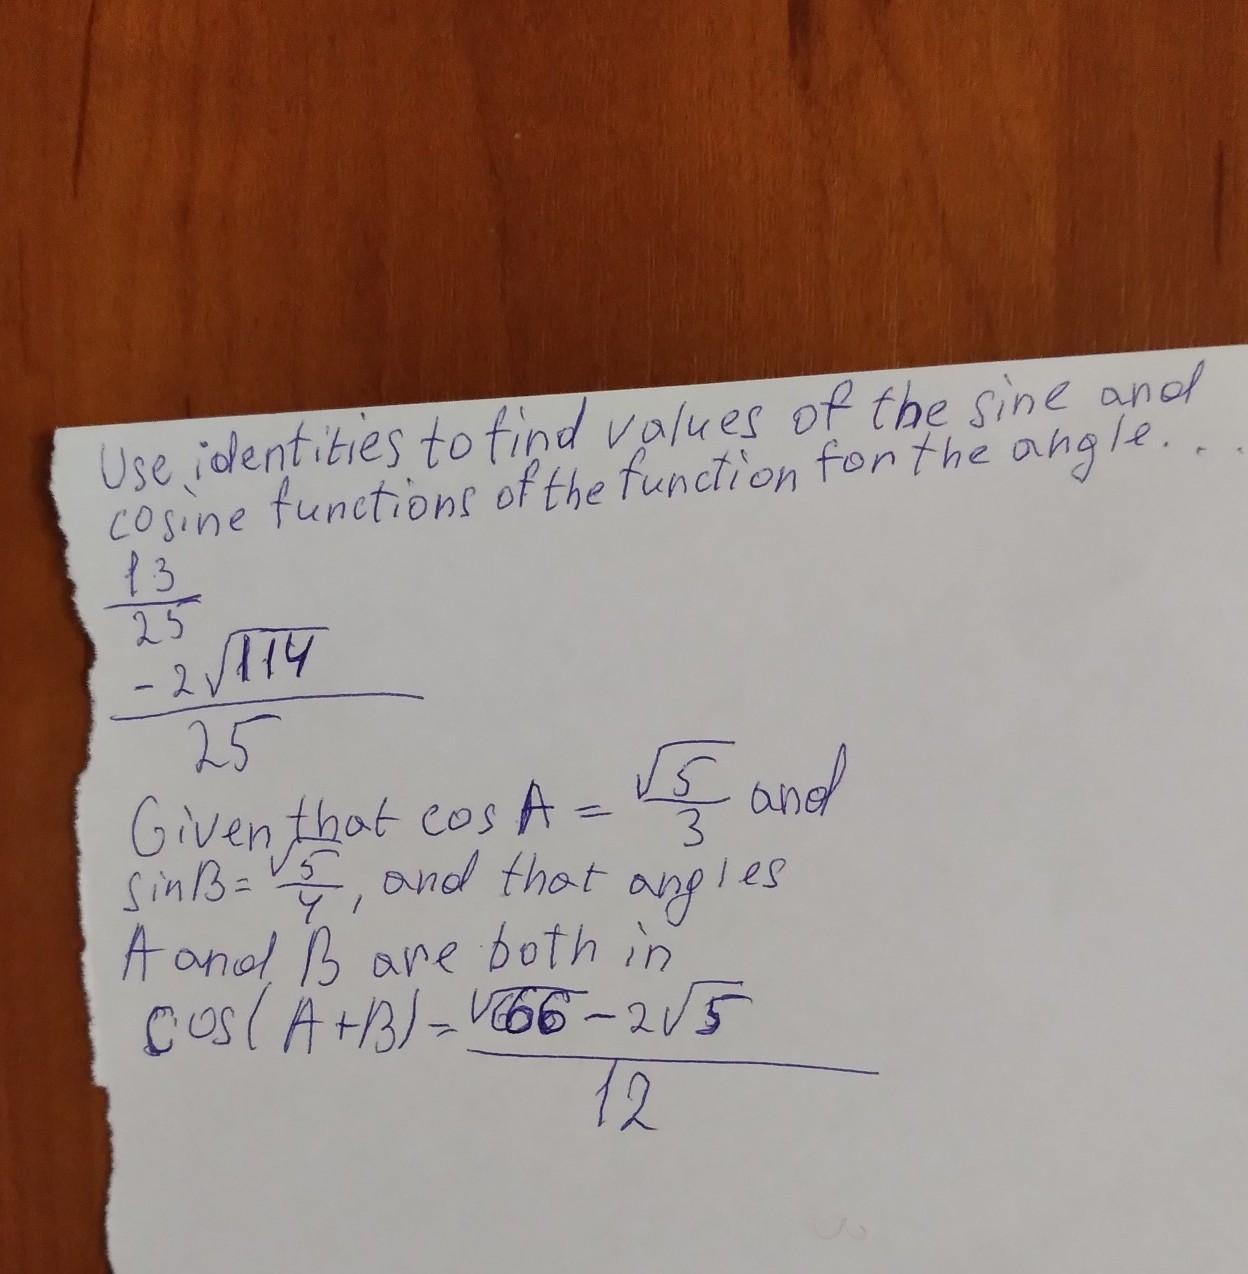 Use identities to find values of the sine and
cosine functions of the function for the angle. . .
13
25
-2√114
25
Given that cos A = √5/3 and
sinB = √5/4, and that angles
A and B are both in
cos(A+B) = √66 - 2√5
12